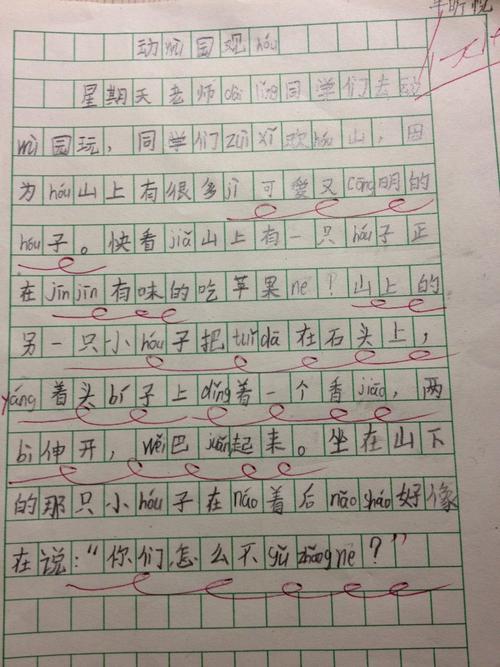 动wù园观hóu
星期天老师dài lǐng同学们去动
wù园玩，同学们zuì xǐ欢hóu山，因
为hóu山上有很多jì可爱又cōng明的
hóu子。快看jiǎ山上有一只hóu子正
在jīn jīn有味的吃苹果ne？山上的
另一只小hóu子把tuǐ dā在石头上，
yáng着头bí子上dǐng着一个香jiāo，两
bì伸开，wěi巴juǎn起来。坐在山下
的那只小hóu子在náo着后nǎo sháo好像
在说：“你们怎么不gǔ zhǎng ne？”